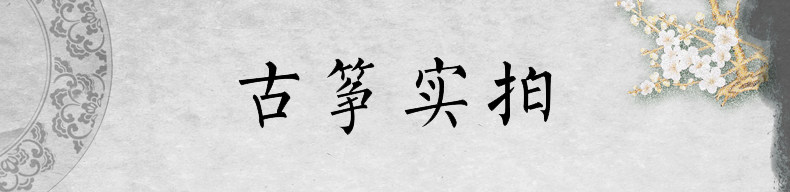 古筝实拍